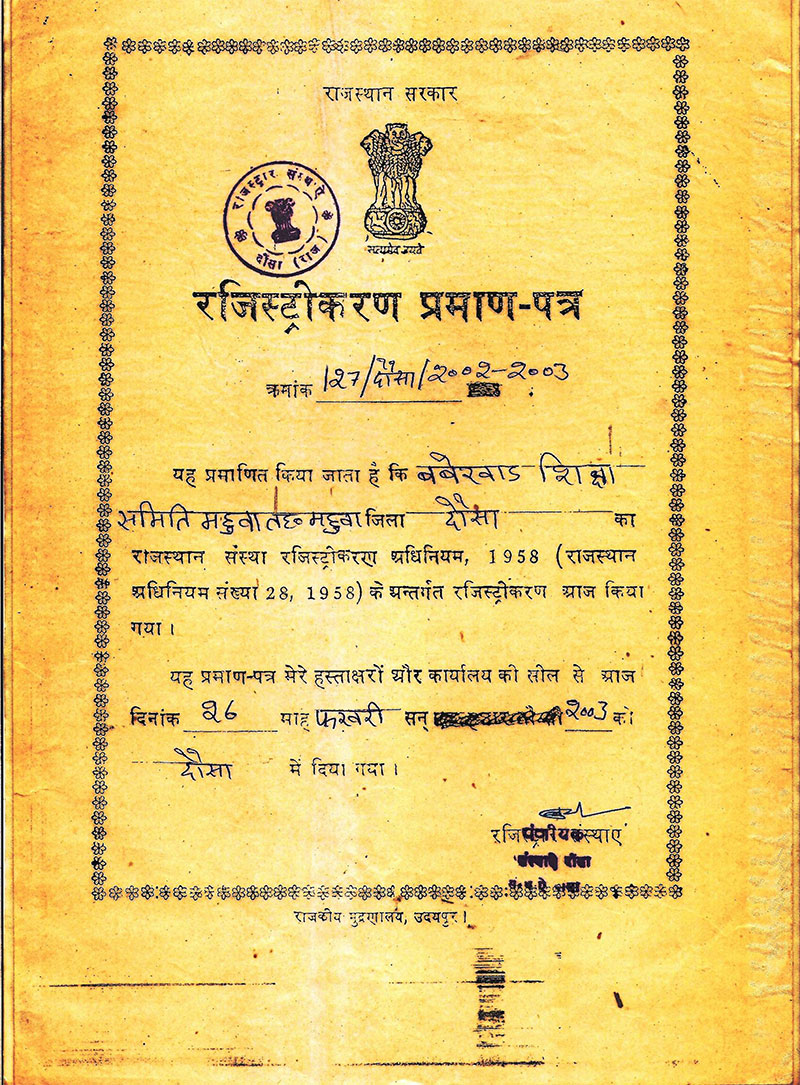 राजस्थान सरकार
सत्यमेव जयते
राजस्ट्रार संस्थाऐं
दौसा (राज)
रजिस्ट्रीकरण प्रमाण-पत्र
क्रमांक 127/दौसा/२००२-२००३
यह प्रमाणित किया जाता है कि बबेरवाड शिक्षा
समिति महुवा तह महुवा जिला दौसा का
राजस्थान संस्था रजिस्ट्रीकररण अधिनियम, 1958 (राजस्थान
अधिनियम संख्या 28, 1958) के अन्तर्गत रजिस्ट्रीकरण आज किया
गया ।
यह प्रमाण-पत्र मेरे हस्ताक्षरों और कार्यालय की सील से आज
दिनांक २6 माह फरवरी सन् २००३ को
दौसा में दिया गया ।
संस्थाऐं दौसा
राजकीय मुद्रणालय, उदयपुर ।